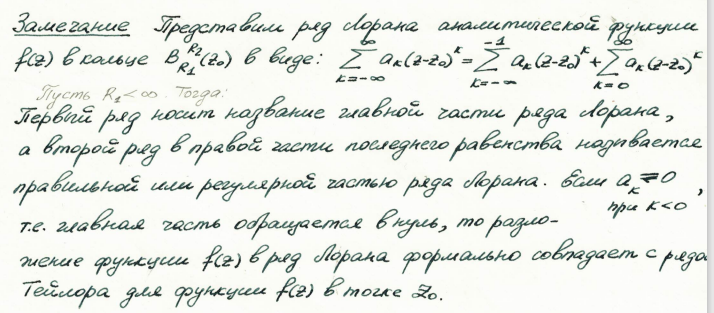 Замечание Представим ряд Лорана аналитической функции
f(z) в кольце B_{R_1}^{R_2}(z_0) в виде: \sum_{k=-\infty}^{\infty} a_k(z-z_0)^k = \sum_{k=-\infty}^{-1} a_k(z-z_0)^k + \sum_{k=0}^{\infty} a_k(z-z_0)^k
Пусть R_1 < ∞. Тогда:
Первый ряд носит название главной части ряда Лорана,
а второй ряд в правой части последнего равенства называется
правильной или регулярной частью ряда Лорана. Если a_k = 0,
при k<0
т.е. главная часть обращается в нуль, то разло-
жение функции f(z) в ряд Лорана формально совпадает с рядо
Тейлора для функции f(z) в точке z_0.